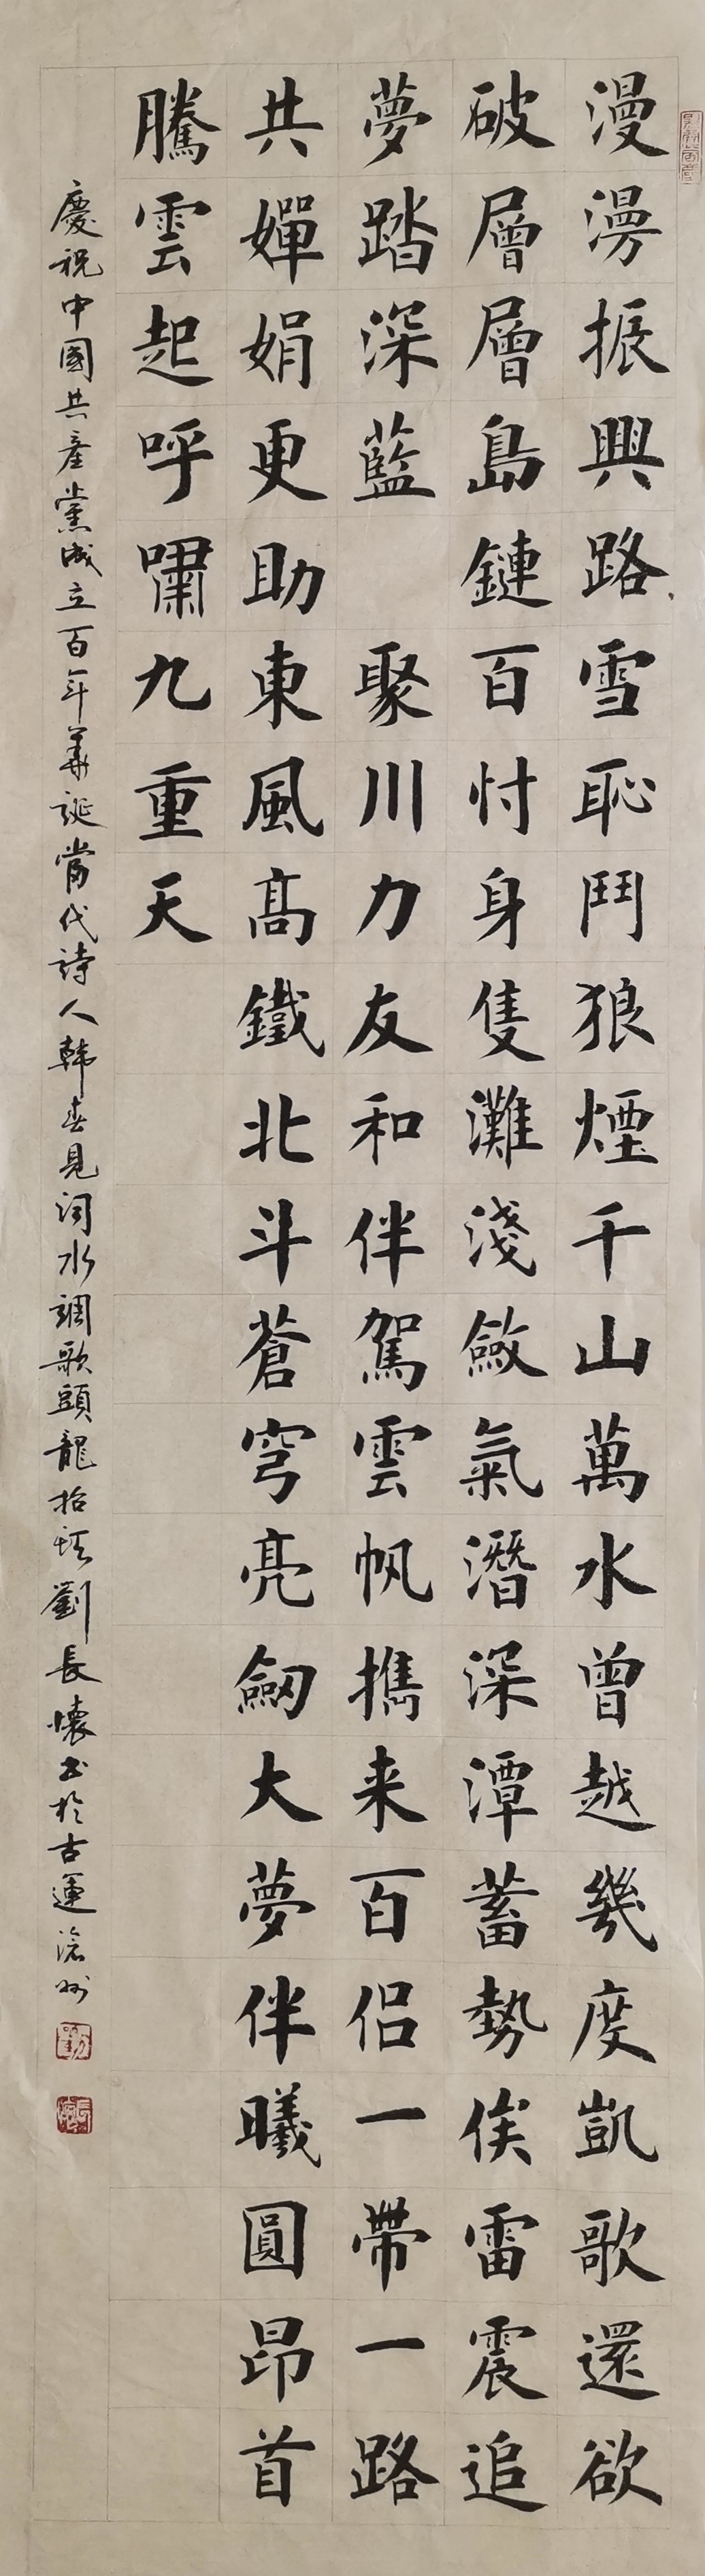 漫漫振興路雪恥鬥狼煙千山萬水曾越幾度凱歌還欲
破層層島鏈百忖身隻灘淺斂氣潛深潭蓄勢俟雷震追
夢踏深藍 聚川力友和伴駕雲帆攜来百侣一帶一路
共嬋娟更助東風高鐵北斗蒼穹亮劒大夢伴曦圓昂首
騰雲起呼嘯九重天
慶祝中國共產黨成立百年華誕當代詩人韓春見詞水調歌頭龍抬頭劉長懷书於古運滄州